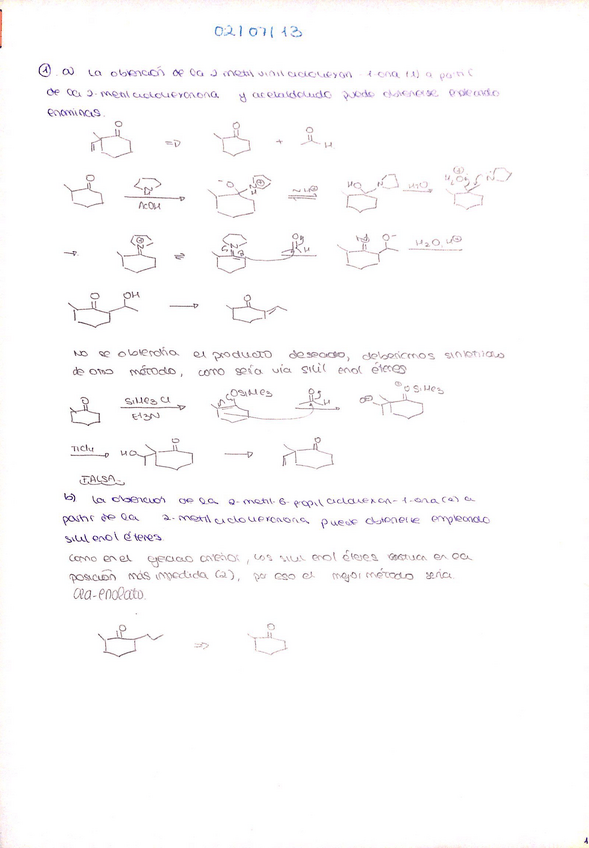 02/07/13
1 a) La obtención de la 2-metil vinil ciclohexan-1-ona (1) a partir
de la 2-metilciclohexanona y acetaldehído puede obtenerse empleando
enaminas.
O O O
⇒ + H
O N H AcOH ⁻O N⊕ H ~H⊕ HO N H₂O N
→ N⊕ ⇌ N O H N O⁻ H₂O, H⊕
O OH → O
No se obtendría el producto deseado, deberíamos sintetizarlo
de otro método, como sería vía silil enol éteres
O SiMe3Cl Et3N OSiMe3 O H O OSiMe3
TiCl4 HO O → O
FALSA
b) La obtención de la 2-metil-6-propil ciclohexan-1-ona (2) a
partir de la 2-metilciclohexanona puede obtenerse empleando
silil enol éteres.
Como en el anterior, los silil enol éteres en la
posición más impedida (2), por eso el mejor método sería
-enolato.
O ⇒ O
1